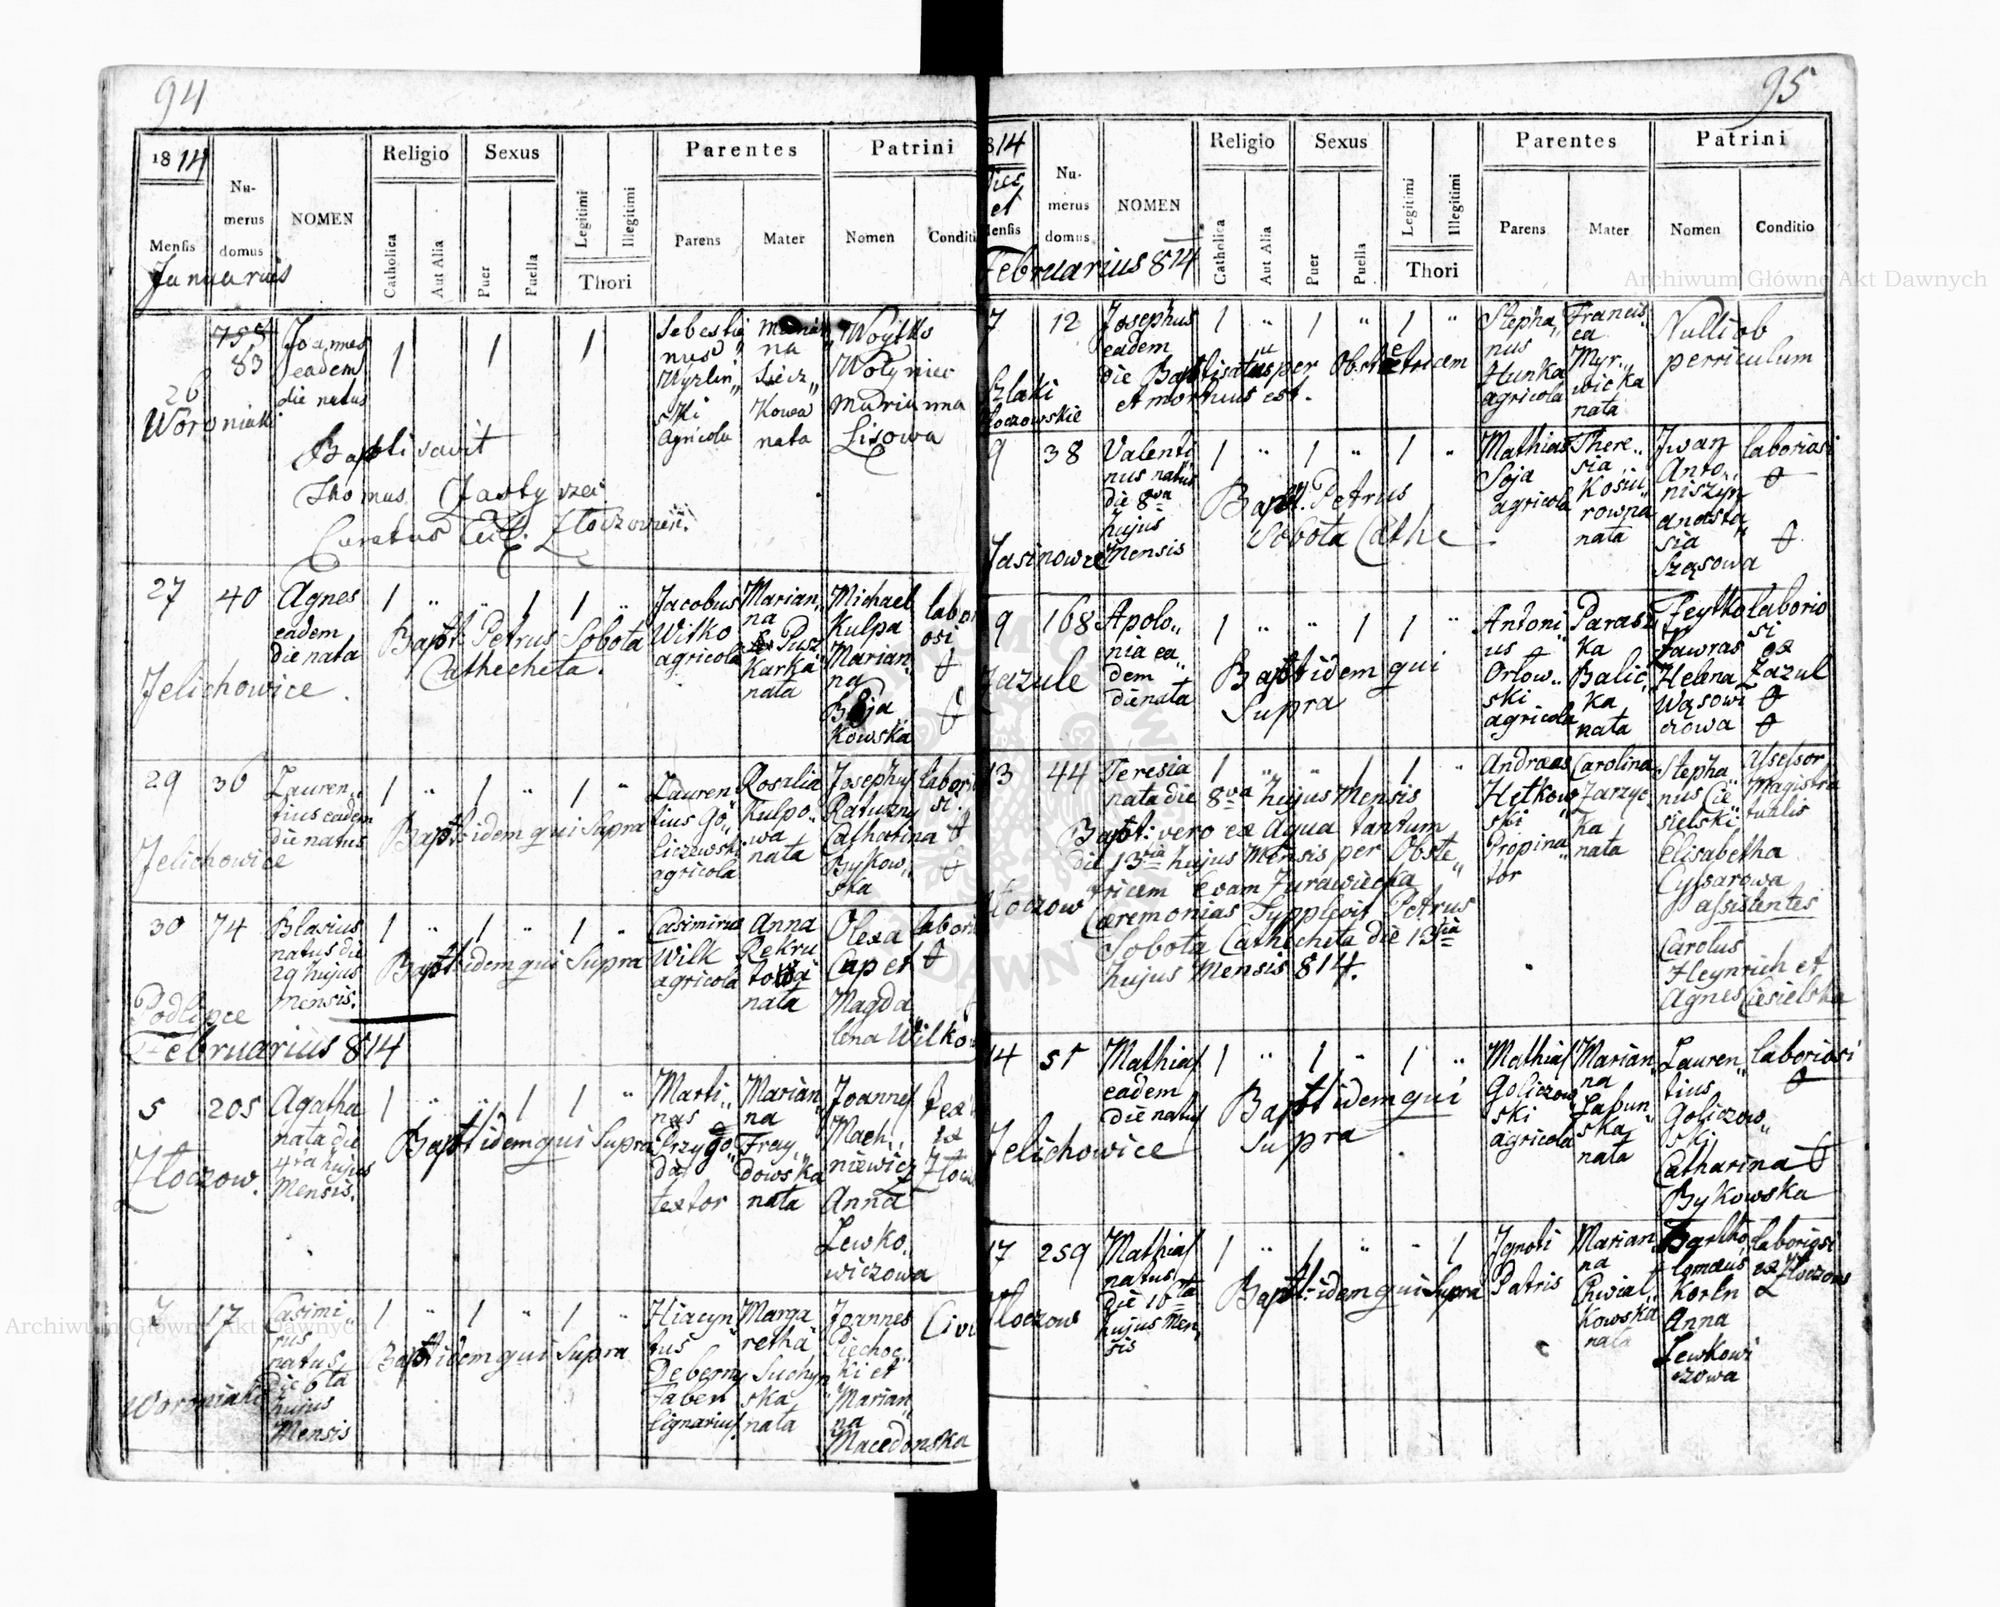 94
1814
Mensis
Januarius
Numerus
domus
NOMEN
Religio
Catholica
Aut Alia
Sexus
Puer
Puella
Legitimi
Illegitimi
Thori
Parentes
Parens
Mater
Patrini
Nomen
Conditi
26
Woroniaki
83
Joannes
eadem
die natus
1
1
1
Baptisavit
Thomas
Curatus
Sebestia
nus
Wyzlin„
ski
Agricola
na
Sicz„
Kowa
nata
Woytko
Wolyniec
Marianna
Lisowa
27
Jelichowice
40
Agnes
eadem
die nata
1 „ „ 1 1 „
Bapt: Petrus Sobota
Cathecheta.
Jacobus
Witko
agricola
Marian„
na
Pusz
Karka
nata
Michael
Kulpa
Marian„
na
Kowska
labor
osi
29
Jelichowice
36
Lauren„
tius eadem
die natus
1 „ 1 „ 1 „
Bapt: idem qui Supra
Lauren
tius Go„
liczewski
agricola
Rosalia
Kulpo„
wa
nata
Josephus
Ratuzny
Catharina
Bykow„
ska
labori
si.
30
Podlipce
74
Blasius
natus die
29 hujus
mensis.
1 „ 1 „ 1 „
Bapt: idem qui Supra
Casimirus
Wilk
agricola
Anna
Rekru
nata
Olexa
Cap et
Magda„
lena Wilkow
labori
Februarius 814
5
Zloczow.
205
Agatha
nata die
4ta hujus
Mensis.
1 „ „ 1 1 „
Bapt: idem qui Supra
Marti„
nus
Przygo„
da
textor
Marian„
na
Fray„
dowska
nata
Joannes
Mach„
niewicz
Anna
Lewko„
wiczowa
Text
ex
Zlocz
7
Woroniaki
17
Casimi
rus
natus
die 6ta
hujus
Mensis
1 „ 1 „ 1 „
Bapt: idem qui Supra
Hiacyn
tus
Deberny
Faber
lignarius
Marga
retha
Suchyn
ska
nata
Joannes
Piechoc„
ki et
Marian„
na
Macedonska
Civi
95
814
Dies
et
Mensis
Februarius 814
Numerus
domus
NOMEN
Religio
Catholica
Aut Alia
Sexus
Puer
Puella
Legitimi
Illegitimi
Thori
Parentes
Parens
Mater
Patrini
Nomen
Conditio
7
Szlaki
Zloczowskie
12
Josephus
eadem
die Baptisatus per Obstetricem
et mortuus est.
1 „ 1 „ 1 „
Stepha„
nus
Hunka
agricola
Francis
ca
Myr„
wicka
nata
Nulli ob
perriculum
9
Jasinowce
38
Valenti
nus natus
die 8va
hujus
Mensis
1 „ 1 „ 1 „
Bapt. Petrus
Sobota Cathe
Mathias
Soja
agricola
There„
sia
Kosiu
rowna
nata
Iwan
Anto„
niszyn
anasta
sia
Sząsowa
laboriosi
9
Zazule
168
Apolo„
nia ea„
dem
die nata
1 „ „ 1 1 „
Bapt idem qui
Supra
Antoni
us
Orlow„
ski
agricola
Parasz
ka
Balic„
ka
nata
Feytko
Jawras
Helena
Wąsowi
czowa
laborio
si
ex
Zazul
13
Zloczow
44
Teresia
nata die 8va hujus Mensis
Bapt: vero ex Aqua tantum
die 13tia hujus Mensis per Obste„
tricem Evam Zurawiecka
Cæremonias Supplevit Petrus
Sobota Cathecheta die 13tia
hujus Mensis 814.
1 „ „ 1 1 „
Andreas
Hetkow
ski
Propina„
tor
Carolina
Jarzyc
ka
nata
Stepha„
nus Cie„
sielski
Elisabetha
Cyssarowa
assistentes
Carolus
Heynrich et
Agnes Ciesielska
Assessor
Magistra
tualis
14
Jelichowice
51
Mathias
eadem
die natus
1 „ 1 „ 1 „
Bapt idem qui
Supra
Mathias
Goliczow
ski
agricola
Marian„
na
Lapun„
ska
nata
Lauren„
tius
Goliczow„
ski
Catharina
Bykowska
laboriosi
17
Zloczow
259
Mathias
natus
die 16ta
hujus Men„
sis
1 „ 1 „ „ 1
Bapt: idem qui Supra
Ignoti
Patris
Marian„
na
Chwial„
kowska
nata
Bartho„
lomæus
Korln
Anna
Lewkowi
czowa
laboriosi
ex Zloczow
Archiwum Główne Akt Dawnych
Archiwum Główne Akt Dawnych